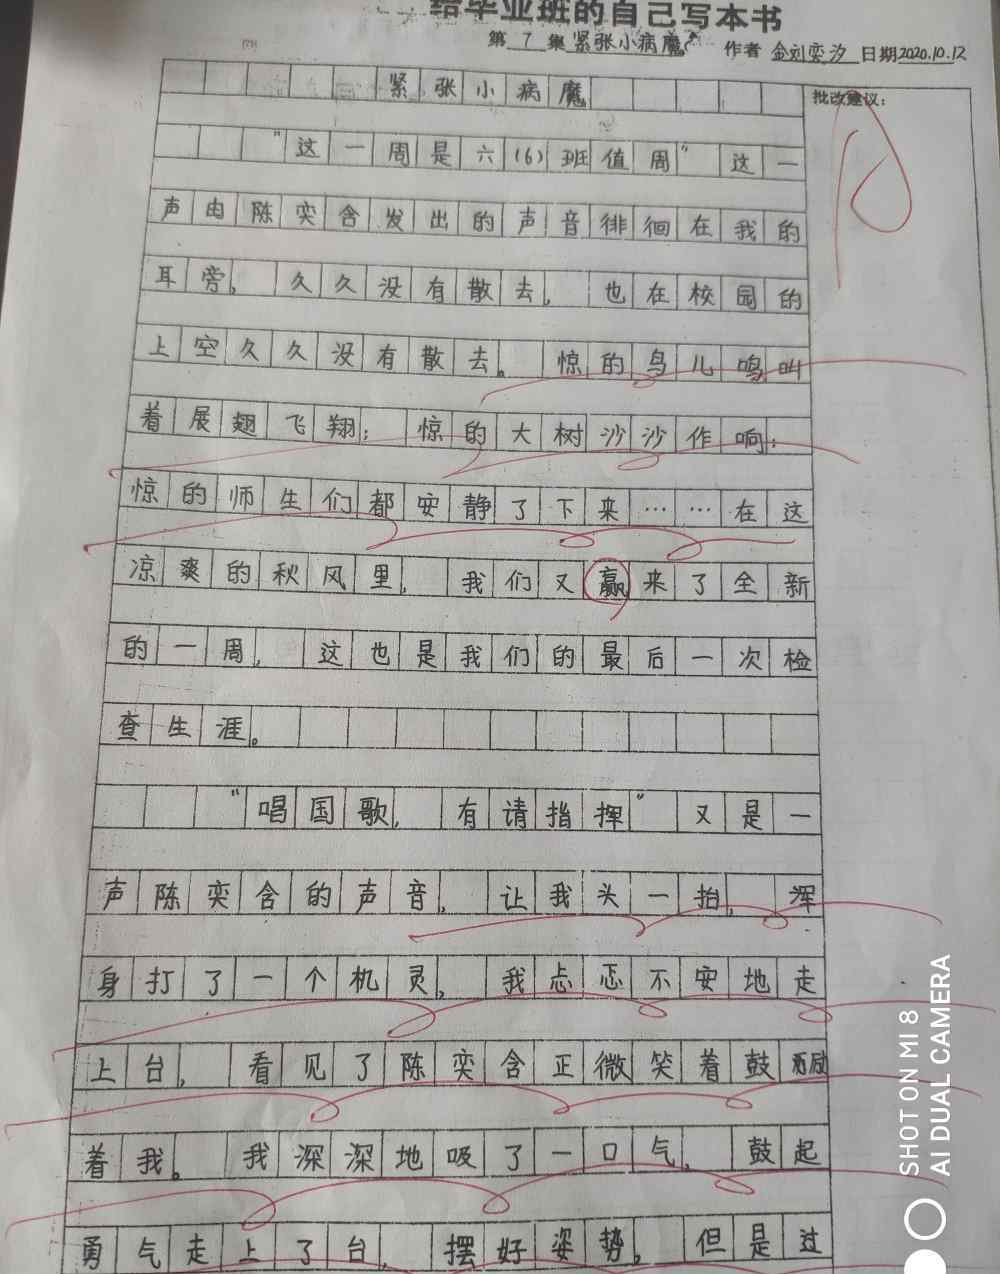 给毕业班的自己写本书
第 7 集 紧张小病魔 作者 金刘奕汐 日期 2020.10.12
批改建议：
紧张小病魔
"这一周是六(6)班值周"这一
声由陈奕含发出的声音徘徊在我的
耳旁，久久没有散去，也在校园的
上空久久没有散去。惊的鸟儿鸣叫
着展翅飞翔；惊的大树沙沙作响；
惊的师生们都安静了下来……在这
凉爽的秋风里，我们又赢来了全新
的一周，这也是我们的最后一次检
查生涯。
"唱国歌，有请指挥"又是一
声陈奕含的声音，让我头一抬，浑
身打了一个机灵，我忐忑不安地走
上台，看见了陈奕含正微笑着鼓励
着我。我深深地吸了一口气，鼓起
勇气走上了台，摆好姿势，但是过
SHOT ON MI 8
AI DUAL CAMERA